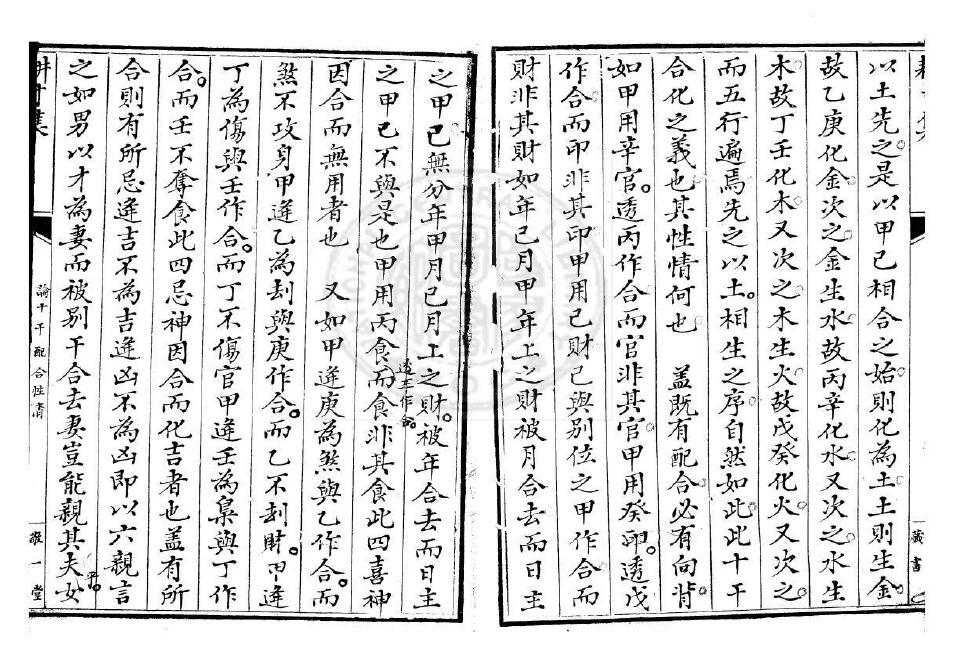 以土先之是以甲己相合之始則化為土土則生金
故乙庚化金次之金生水故丙辛化水又次之水生
木故丁壬化木又次之木生火故戊癸化火又次之
而五行遍焉先之以土相生之序自然如此此十干
合化之義也其性情何也 盖既有配合必有向背
如甲用辛官透丙作合而官非其官甲用癸印透戊
作合而印非其印甲用己財己與別位之甲作合而
財非其財如年己月甲年上之財被月合去而日主
之甲己無分年甲月己月上之財被年合去而日主
之甲己不與是也甲用丙食透辛作合而食非其食此四喜神
因合而無用者也 又如甲逢庚為煞與乙作合而
煞不攻身甲逢乙為刦與庚作合而乙不刦財甲逢
丁為傷與壬作合而丁不傷官甲逢壬為梟與丁作
合而壬不奪食此四忌神因合而化吉者也盖有所
合則有所忌逢吉不為吉逢凶不為凶即以六親言
之如男以才為妻而被別干合去妻豈能親其夫女
論十干配合性情
雄一堂
藏書